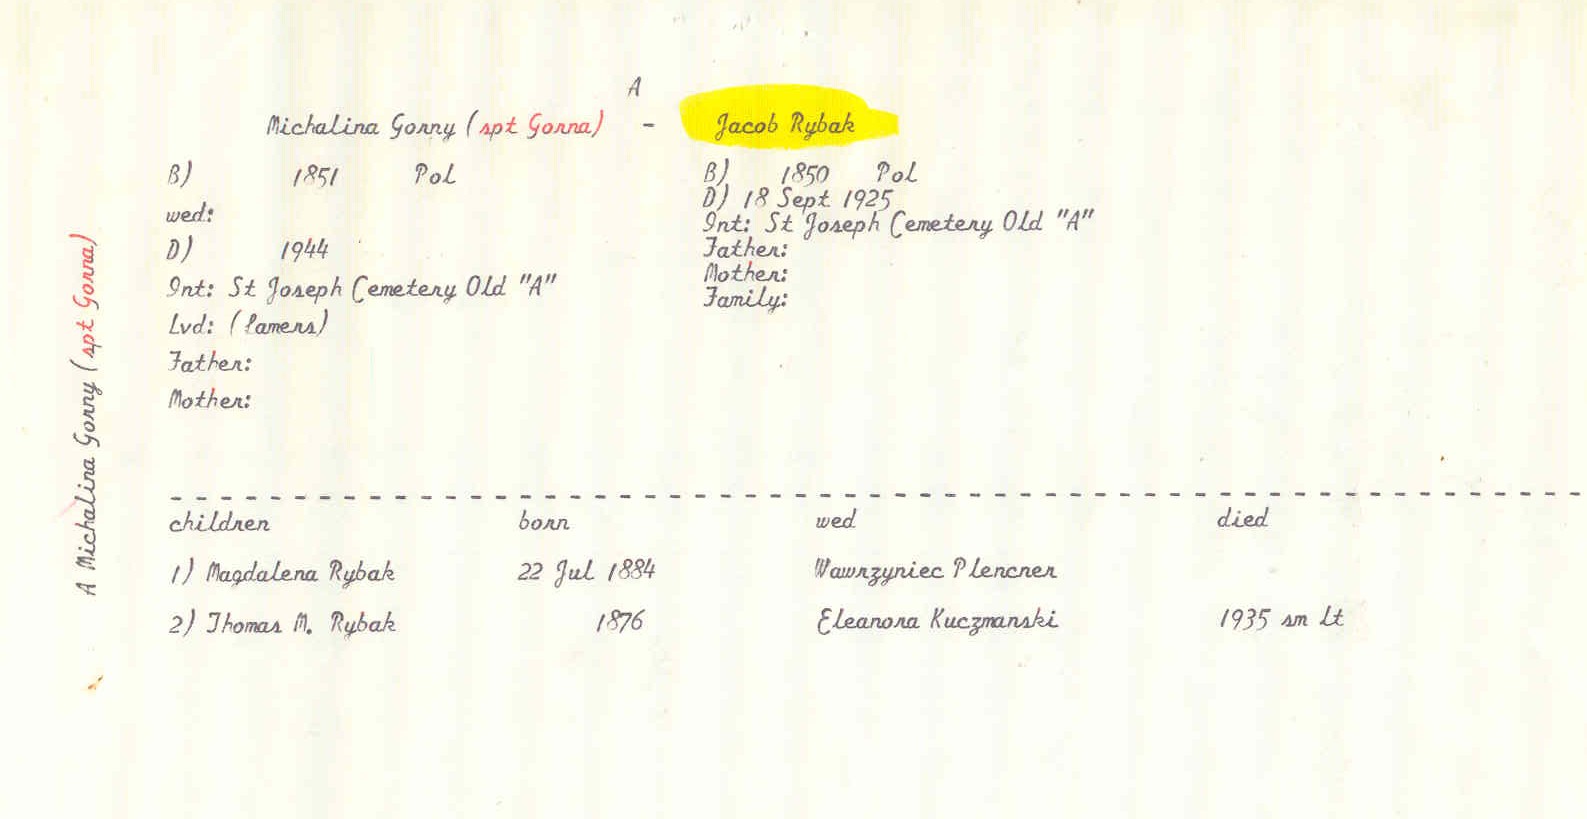 A
Michalina Gorny (spt Gorna) - Jacob Rybak
B) 1851 Pol
wed:
D) 1944
Int: St Joseph Cemetery Old "A"
Lvd: (famers)
Father:
Mother:
B) 1850 Pol
D) 18 Sept 1925
Int: St Joseph Cemetery Old "A"
Father:
Mother:
Family:
A Michalina Gorny (spt Gorna)
children born wed died
1) Magdalena Rybak 22 Jul 1884 Wawrzyniec Plencner
2) Thomas M. Rybak 1876 Eleanora Kuczmanski 1935 sm Lt